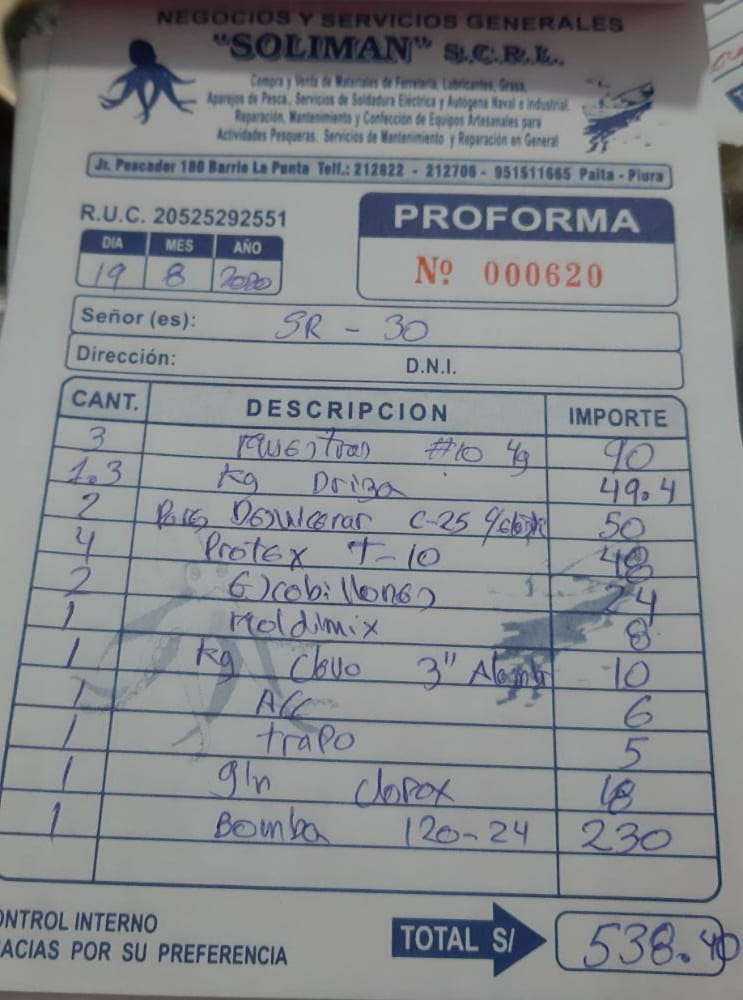 NEGOCIOS Y SERVICIOS GENERALES
"SOLIMAN" S.C.R.L.
Compra y Venta de Materiales de Ferretería, Lubricantes, Grasa,
Aparejos de Pesca, Servicios de Soldadura Eléctrica y Autógena Naval e Industrial.
Reparación, Mantenimiento y Confección de Equipos Artesanales para
Actividades Pesqueras. Servicios de Mantenimiento y Reparación en General
Jr. Pescador 180 Barrio La Punta Telf.: 212622 - 212706 - 951511665 Paita - Piura
R.U.C. 20525292551
PROFORMA
DIA MES AÑO
19 8 2020
Nº 000620
Señor (es): SR - 30
Dirección: D.N.I.
CANT. DESCRIPCION IMPORTE
3 #10 90
1.3 Kg Driza 49.4
2 C-25 50
4 Protex T-10 48
2 Escobillones 24
1 Moldimix 8
1 Kg Clavo 3" 10
1 6
1 trapo 5
1 gln Clorox 18
1 Bomba 120-24 230
ONTROL INTERNO
ACIAS POR SU PREFERENCIA
TOTAL S/ 538.40